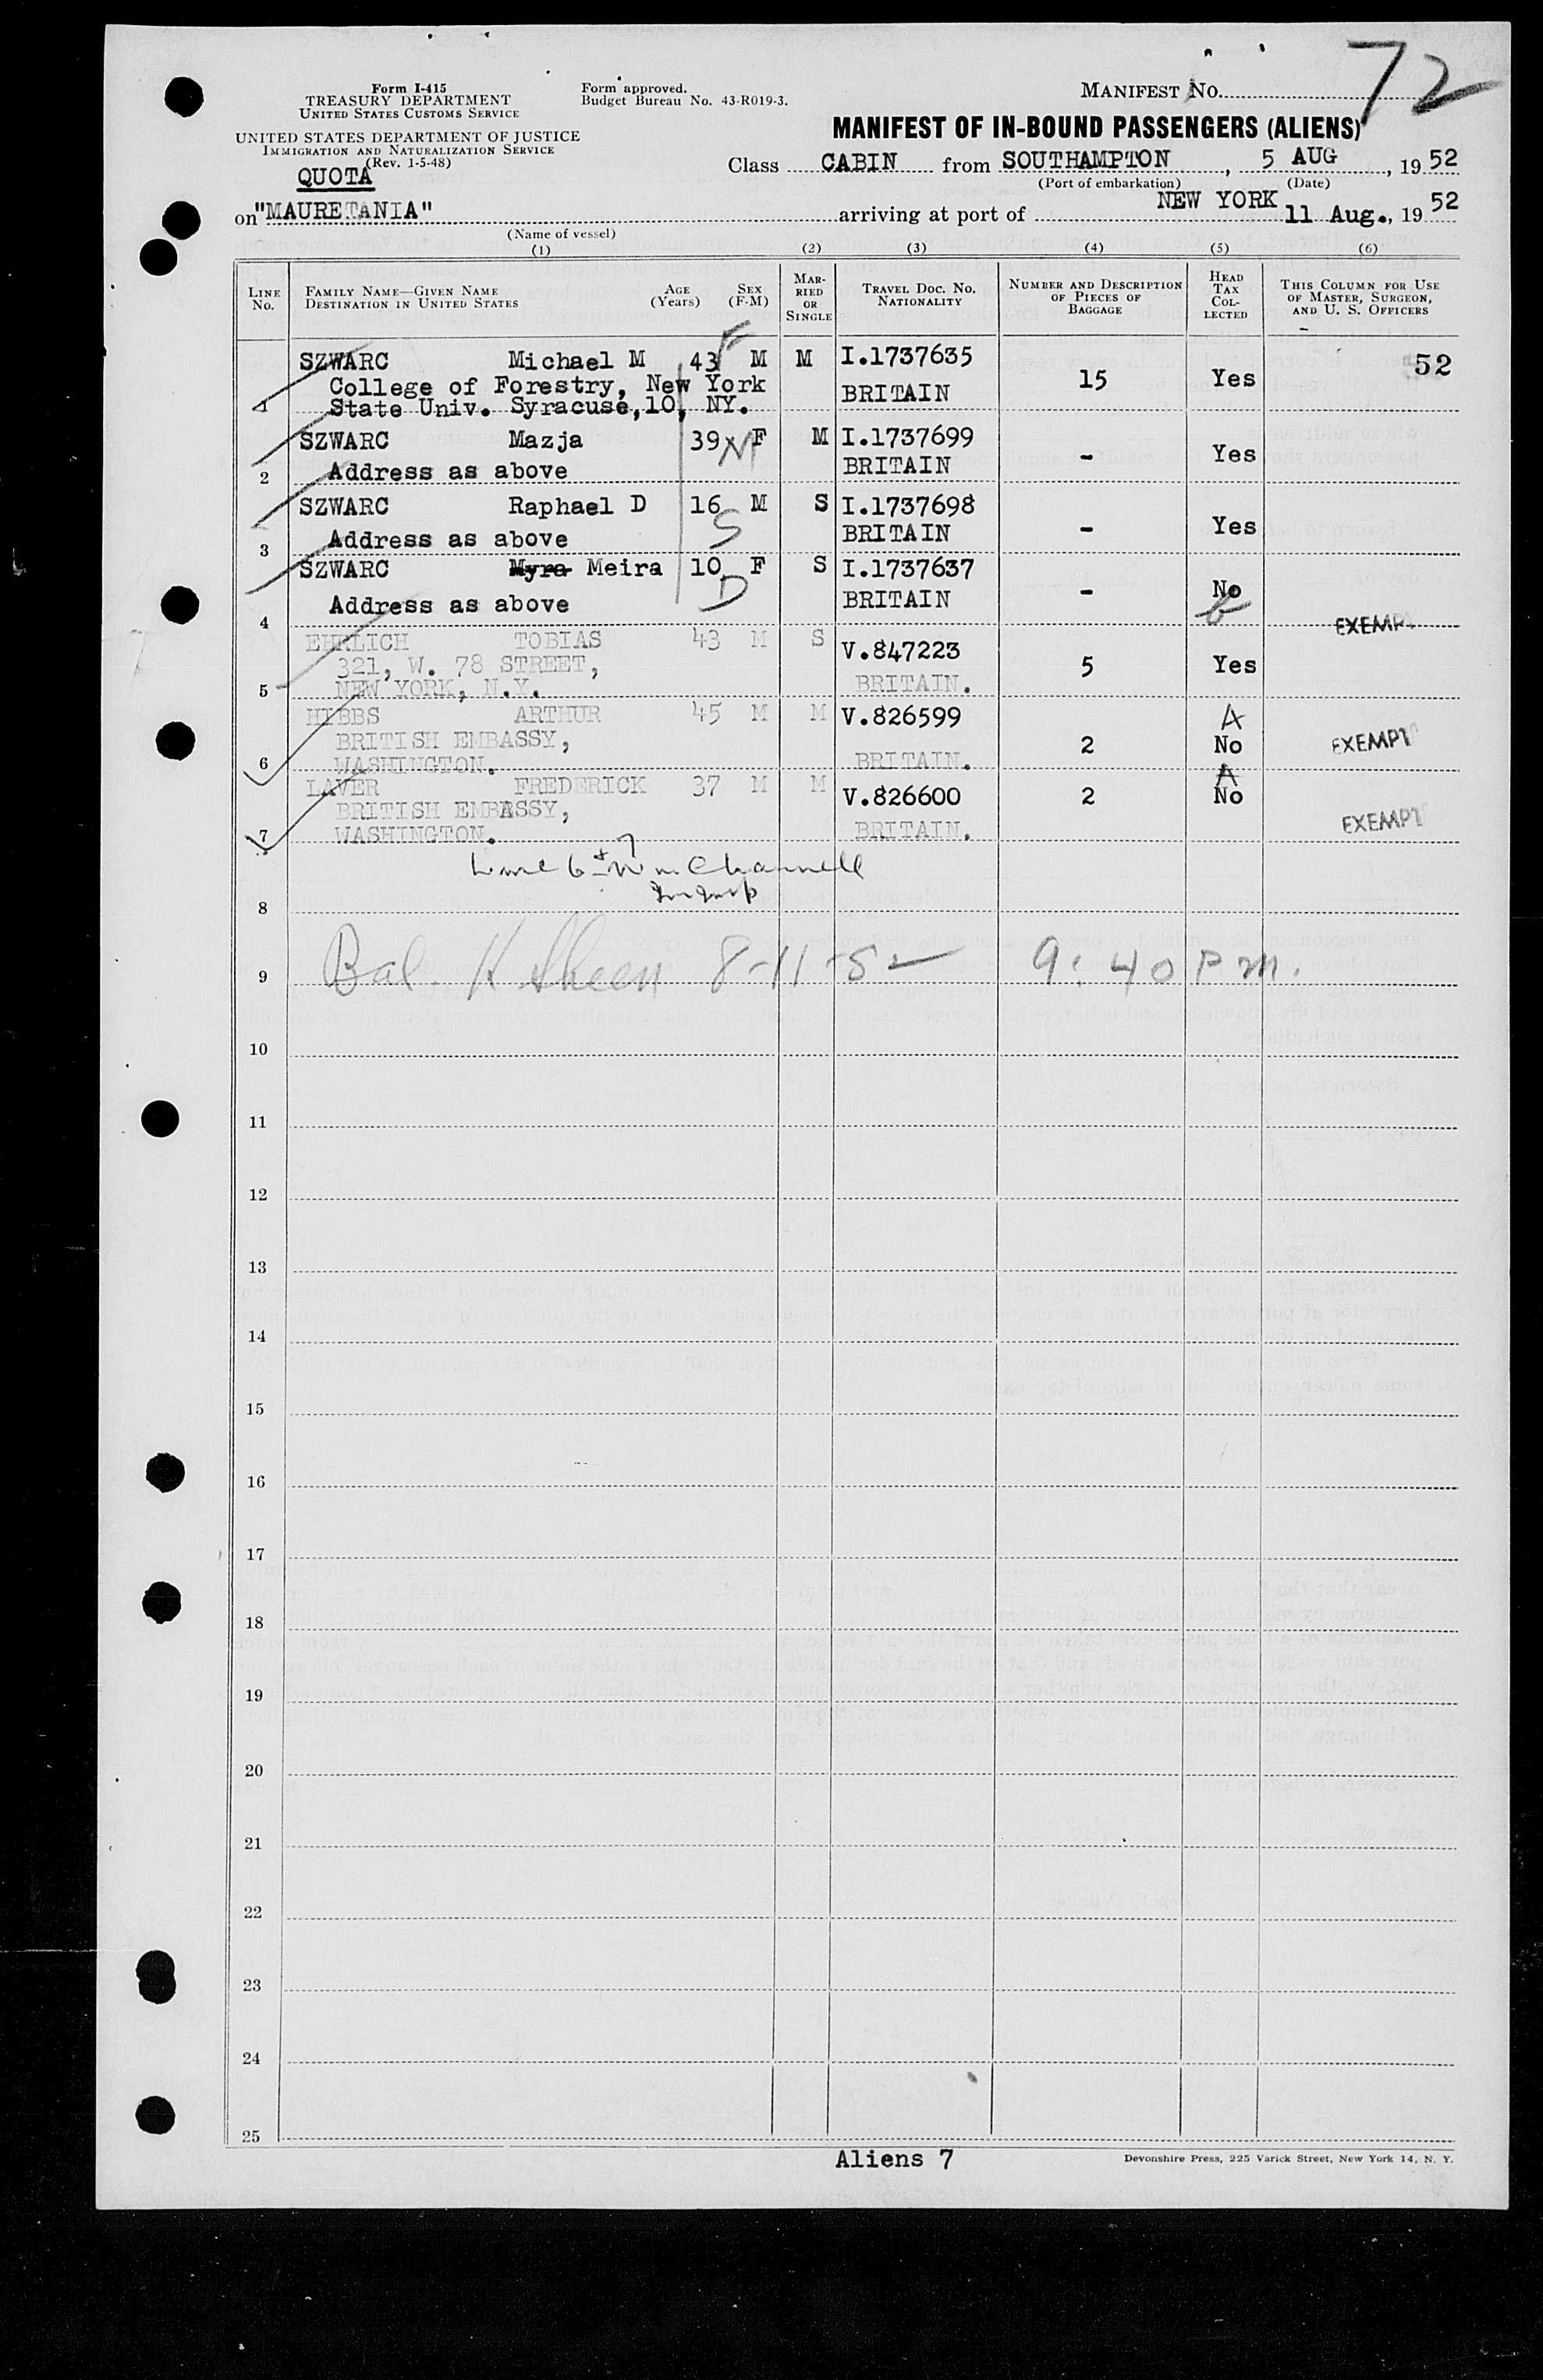 72
Form I-415
TREASURY DEPARTMENT
UNITED STATES CUSTOMS SERVICE
UNITED STATES DEPARTMENT OF JUSTICE
IMMIGRATION AND NATURALIZATION SERVICE
(Rev. 1-5-48)
Form approved.
Budget Bureau No. 43-R019-3.
MANIFEST NO.
MANIFEST OF IN-BOUND PASSENGERS (ALIENS)
QUOTA
Class CABIN from SOUTHAMPTON, 5 AUG, 19 52
(Port of embarkation) (Date)
on "MAURETANIA" arriving at port of NEW YORK 11 Aug., 19 52
(Name of vessel)
(1) (2) (3) (4) (5) (6)
LINE NO.
FAMILY NAME—GIVEN NAME
DESTINATION IN UNITED STATES
AGE (Years)
SEX (F-M)
MARRIED OR SINGLE
TRAVEL DOC. NO.
NATIONALITY
NUMBER AND DESCRIPTION OF PIECES OF BAGGAGE
HEAD TAX COLLECTED
THIS COLUMN FOR USE OF MASTER, SURGEON, AND U. S. OFFICERS
F
SZWARC Michael M 43 M M I.1737635 52
College of Forestry, New York 15 Yes
BRITAIN
1 State Univ. Syracuse,10, NY.
SZWARC Mazja 39 F M I.1737699
- Yes
2 Address as above BRITAIN
SZWARC Raphael D 16 M S I.1737698
S - Yes
3 Address as above BRITAIN
SZWARC Myra Meira 10 F S I.1737637
D - No
4 Address as above BRITAIN
EXEMPT
EHRLICH TOBIAS 43 M S V.847223
321, W. 78 STREET, 5 Yes
5 NEW YORK, N.Y. BRITAIN.
HIBBS ARTHUR 45 M M V.826599 A
BRITISH EMBASSY, 2 No EXEMPT
6 WASHINGTON. BRITAIN.
LAVER FREDERICK 37 M M V.826600 2 A No
BRITISH EMBASSY, EXEMPT
7 WASHINGTON. BRITAIN.
Line 6 + 7
8
9 Bal. 8-11-52 9:40 Pm.
10
11
12
13
14
15
16
17
18
19
20
21
22
23
24
25
Aliens 7
Devonshire Press, 225 Varick Street, New York 14, N. Y.